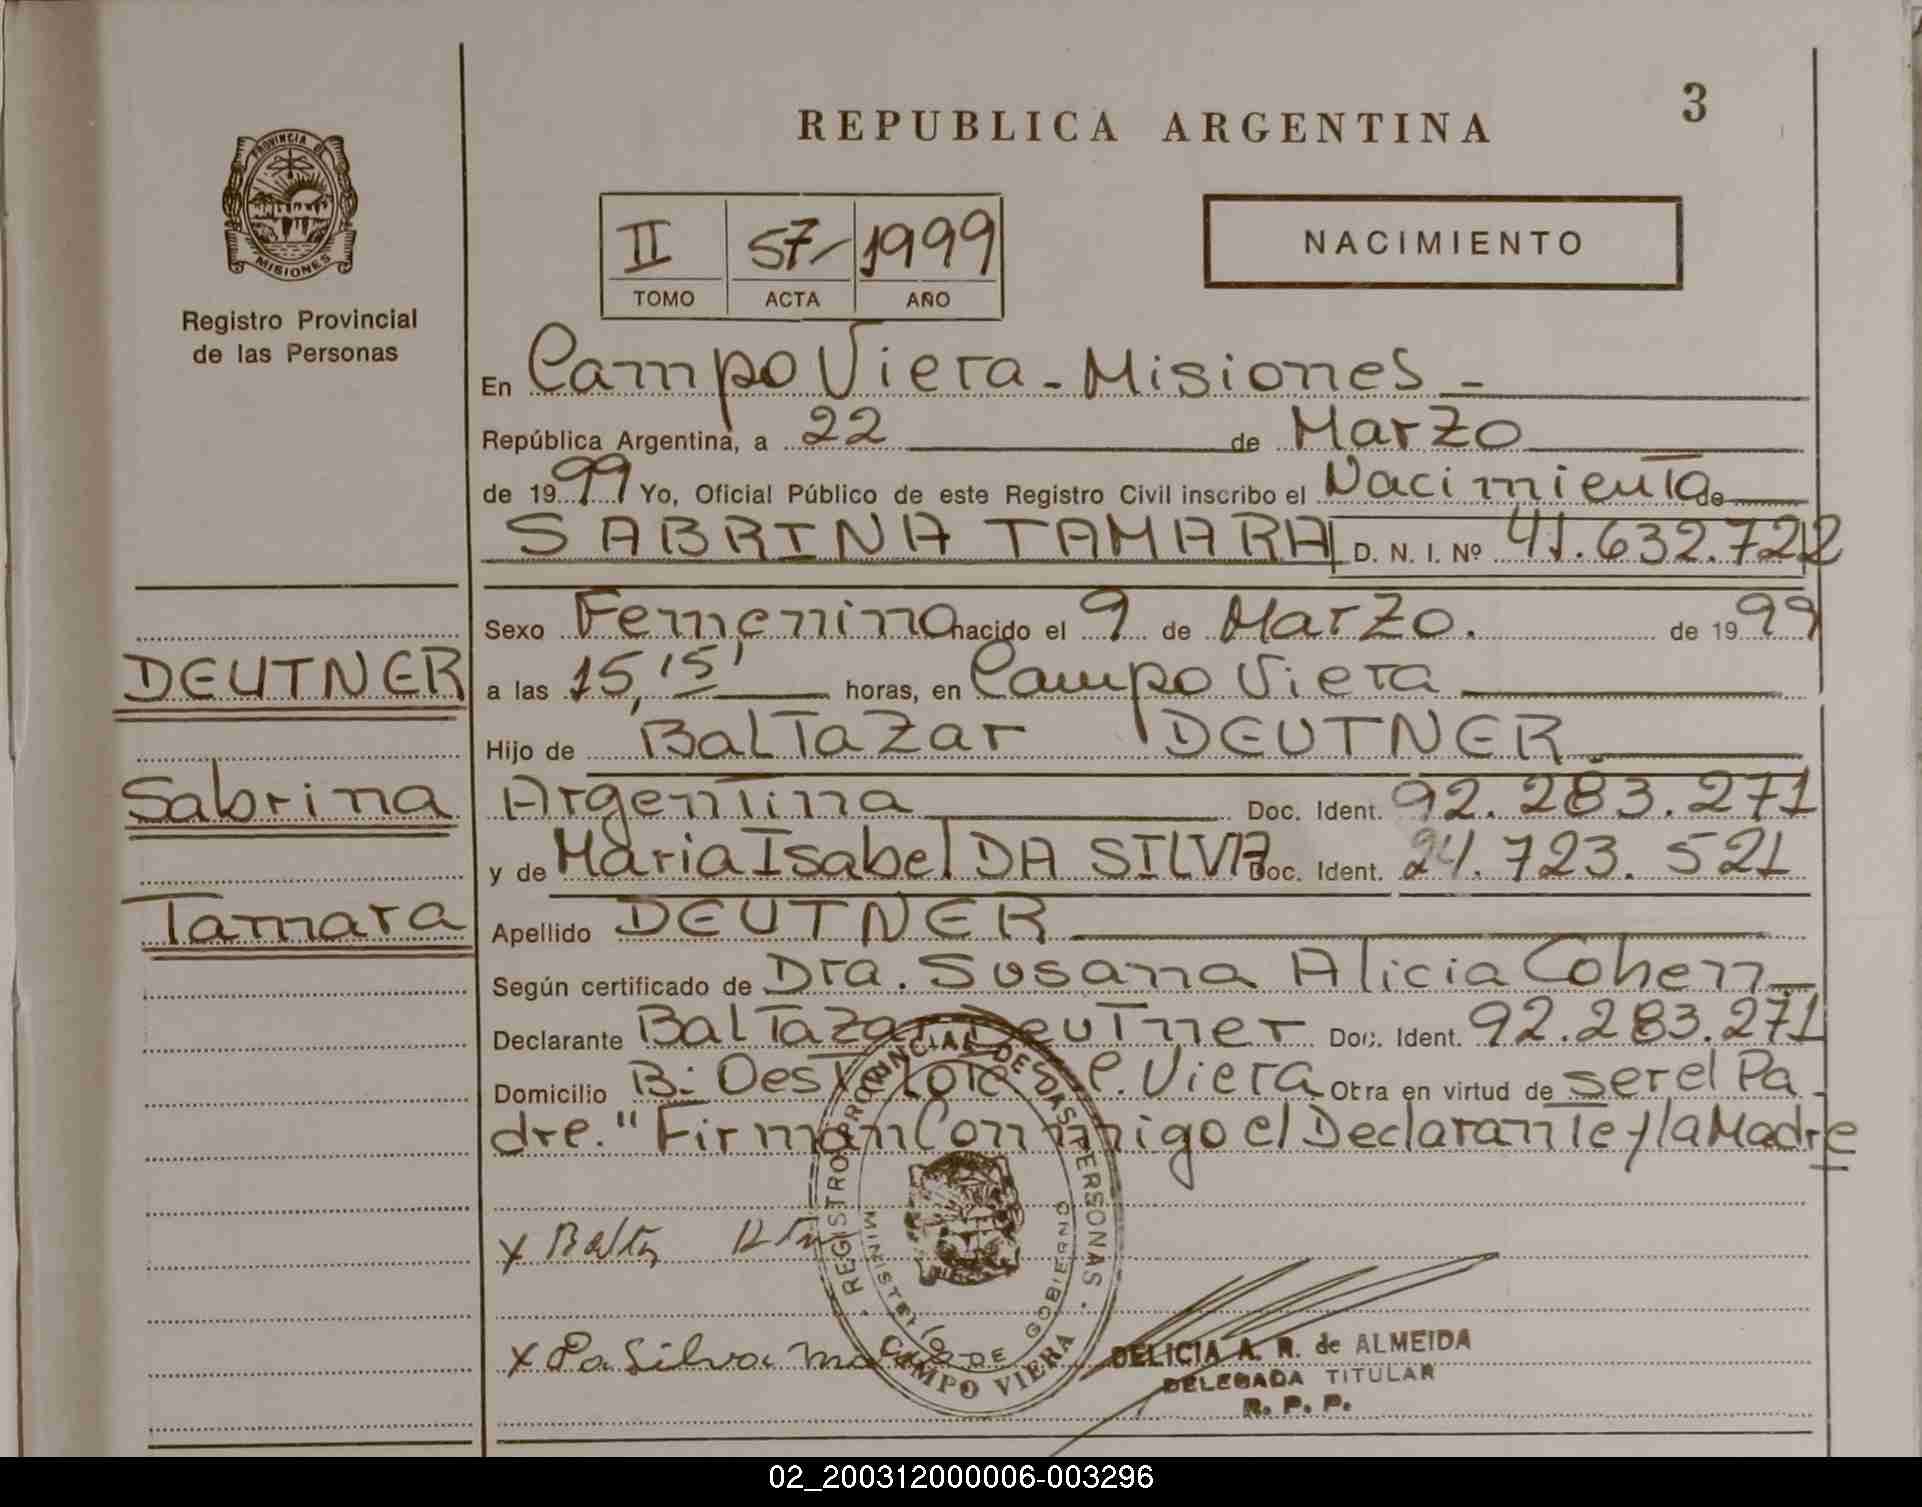 REPUBLICA ARGENTINA
3
PROVINCIA DE
MISIONES
Registro Provincial
de las Personas
II 57 1999
TOMO ACTA AÑO
NACIMIENTO
En Campo Viera - Misiones -
República Argentina, a 22 de Marzo
de 1999 Yo, Oficial Público de este Registro Civil inscribo el Nacimiento de
SABRINA TAMARA D. N. I. Nº 41.632.722
Sexo Femenino nacido el 9 de Marzo. de 1999
DEUTNER
a las 15,15' horas, en Campo Viera
Hijo de Baltazar DEUTNER
Sabrina
Argentina Doc. Ident. 92.283.271
y de Maria Isabel DA SILVA Doc. Ident. 24.723.521
Tamara
Apellido DEUTNER
Según certificado de Dra. Susana Alicia Cohen
Declarante Baltazar Deutner Doc. Ident. 92.283.271
Domicilio B: Oeste C. Viera Obra en virtud de ser el Pa-
dre. "Firman Conmigo el Declarante y la Madre
REGISTRO PROVINCIAL DE LAS PERSONAS
MINISTERIO DE GOBIERNO
CAMPO VIERA
x Da Silva
DELICIA A. R. de ALMEIDA
DELEGADA TITULAR
R. P. P.
02_200312000006-003296